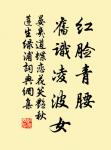 红脸青腰
旧识凌波女
晏几道蝶恋花笑艳秋
莲生绿浦词典网集